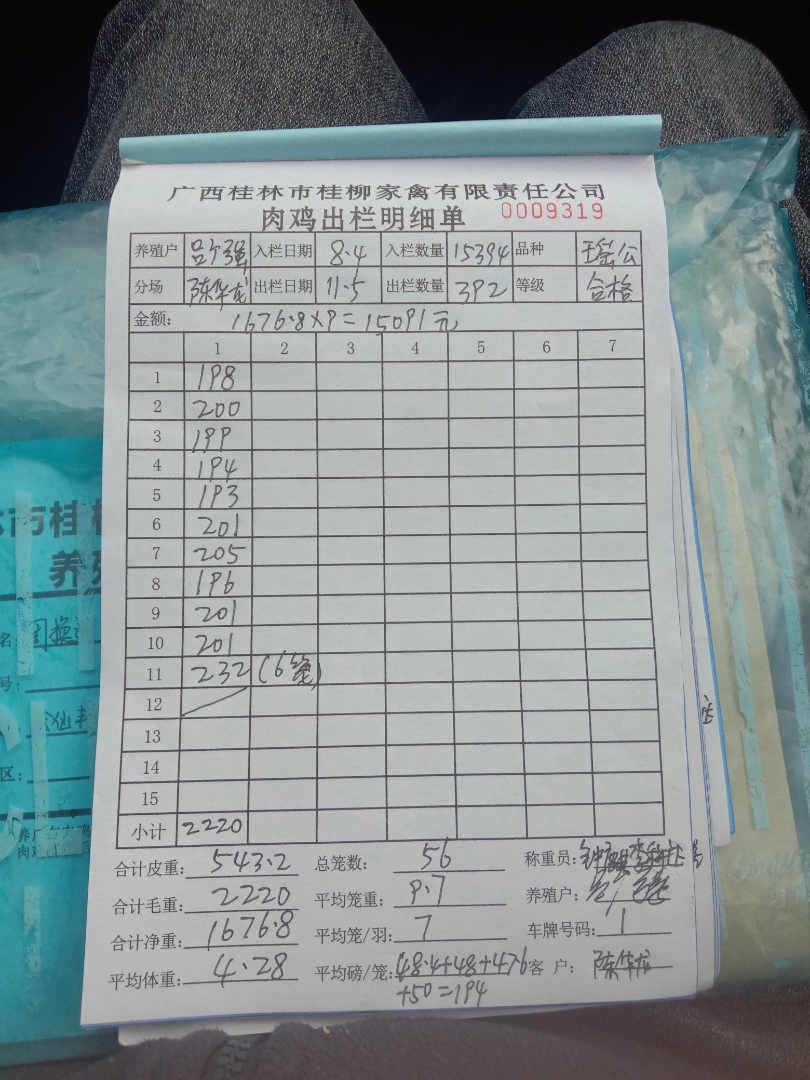 广西桂林市桂柳家禽有限责任公司
肉鸡出栏明细单 0009319
养殖户 入栏日期 8.4 入栏数量 15394 品种 瑶公
分场 陈华龙 出栏日期 11.5 出栏数量 392 等级 合格
金额: 1676.8×9=15091元
1 2 3 4 5 6 7
1 198
2 200
3 199
4 194
5 193
6 201
7 205
8 196
9 201
10 201
11 232 (6笼)
12
13
14
15
小计 2220
合计皮重: 543.2 总笼数: 56 称重员:
合计毛重: 2220 平均笼重: 9.7 养殖户:
合计净重: 1676.8 平均笼/羽: 7 车牌号码: 1
平均体重: 4.28 平均磅/笼: 48.4+48+47.6 客户: 陈华龙
+50=194
市桂
养
名:
号:
区: